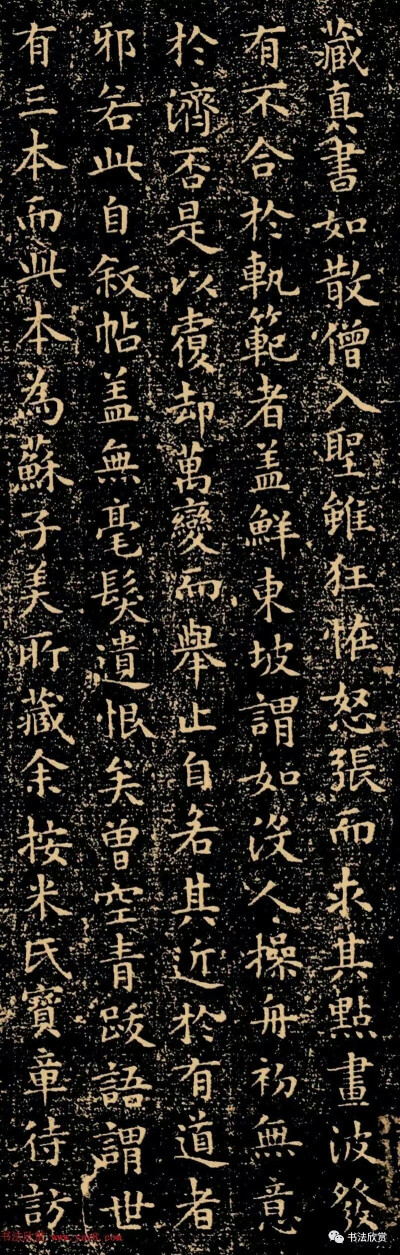 藏真書如散僧入聖雖狂怪怒張而求其點畫波發
有不合於軌範者盖鮮東坡謂如没人操舟初無意
於濟否是以覆却萬變而舉止自若其近於有道者
邪若此自叙帖盖無毫髮遺恨矣曽空青跋語謂世
有三本而此本為蘇子美所藏余按米氏寶章待訪
书法欣赏
书法欣赏